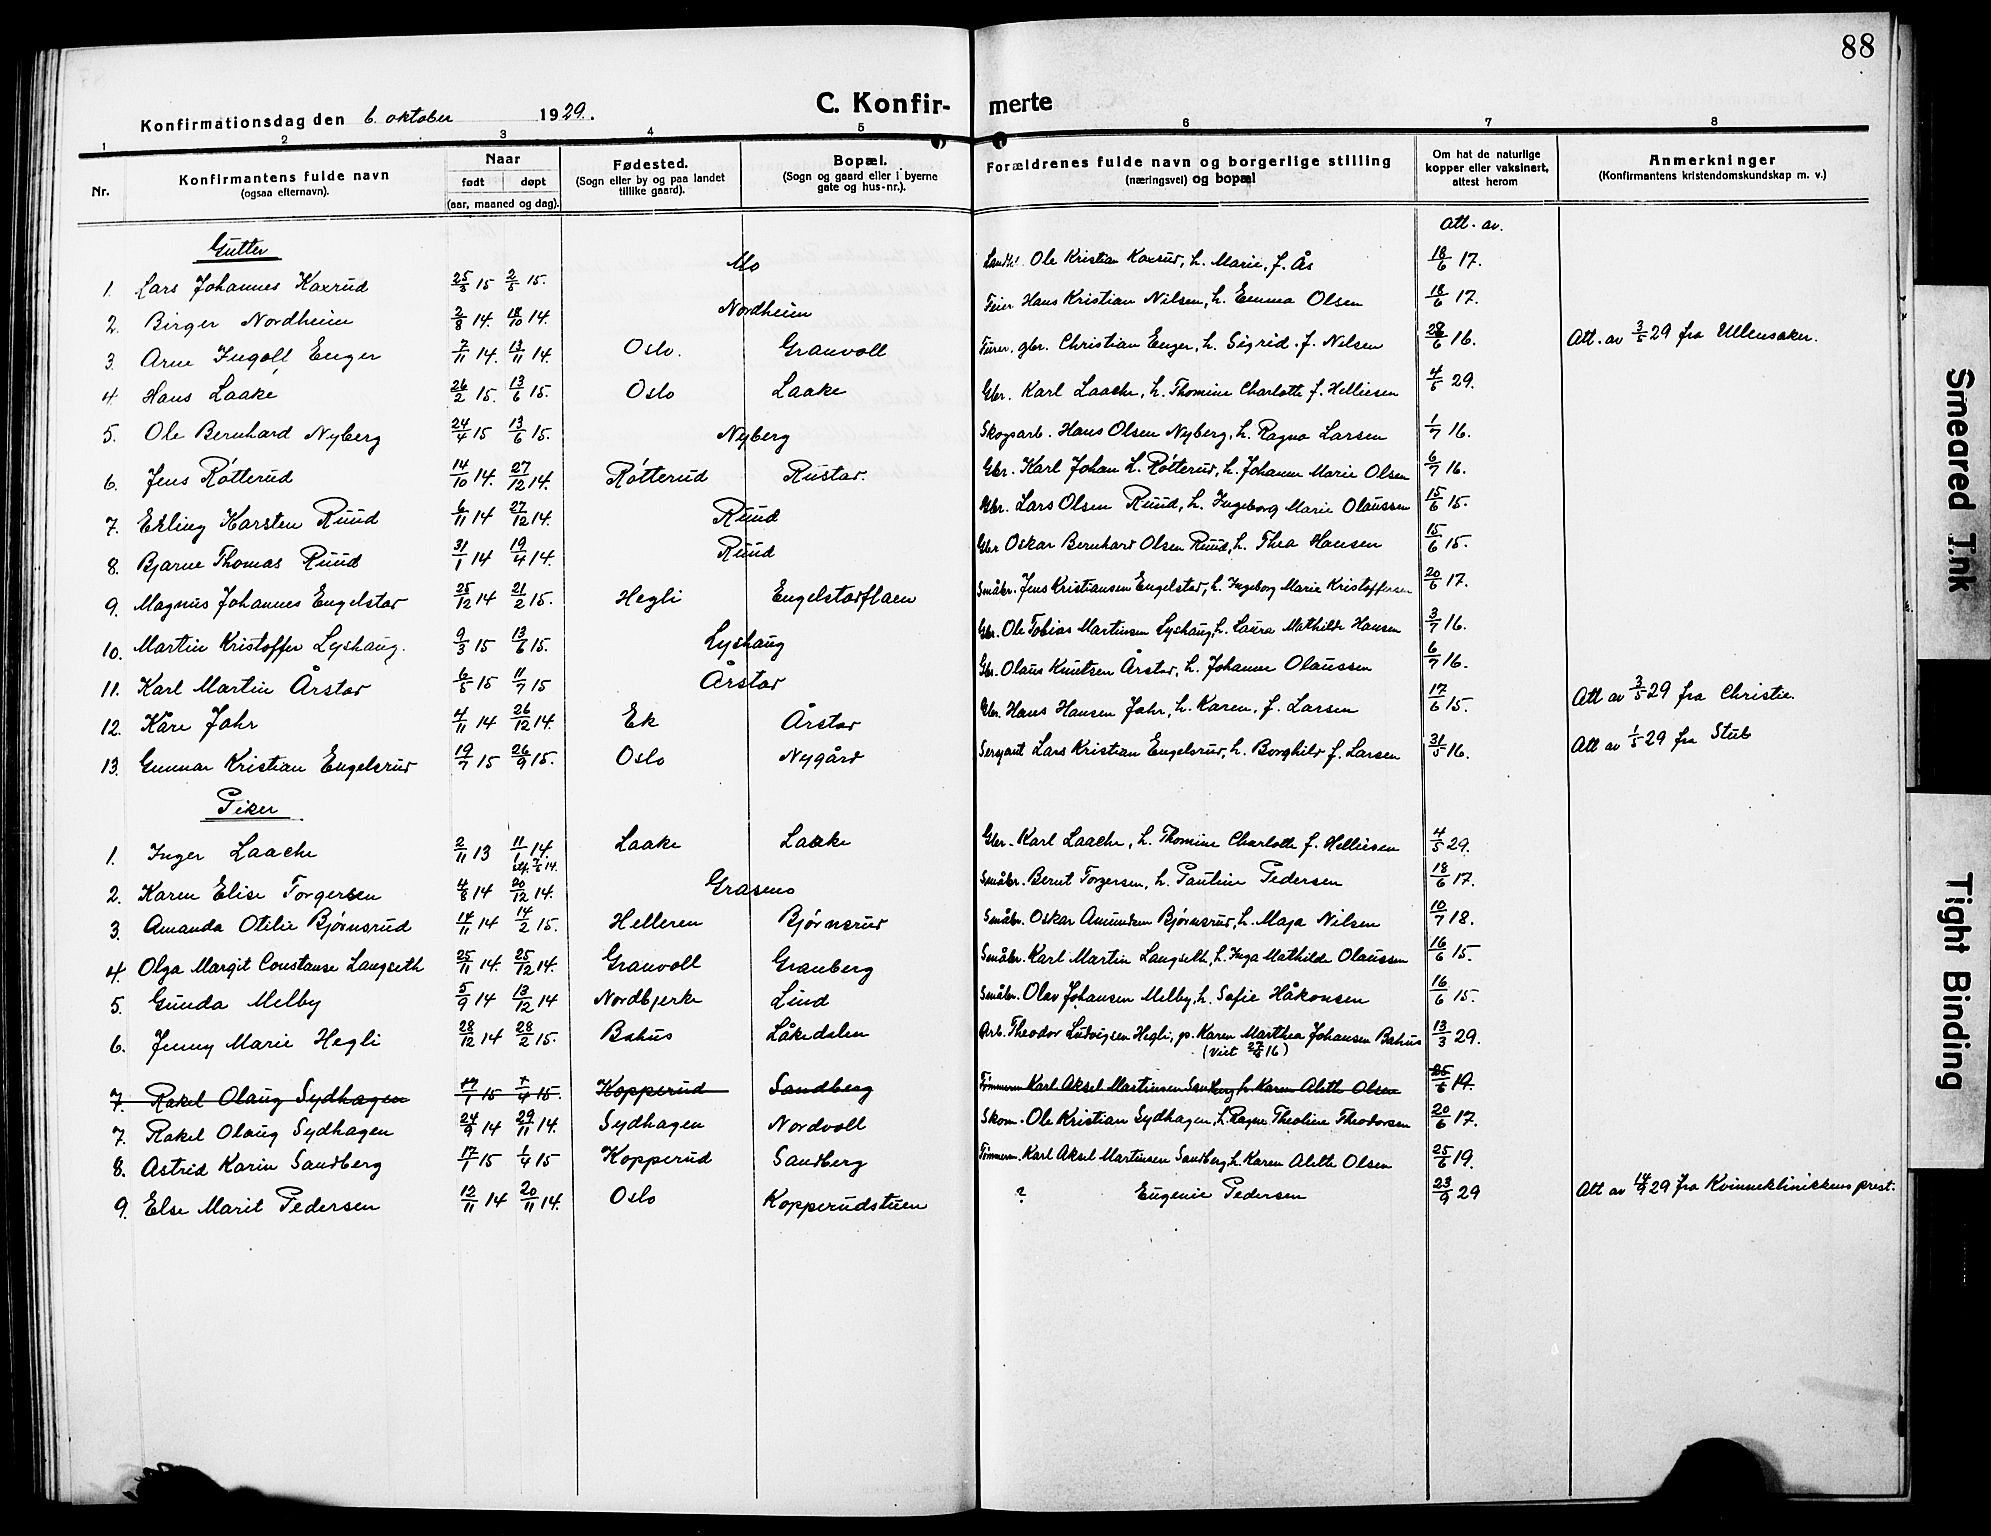 88
C. Konfir- merte
Konfirmationsdag den 6. oktober 1929.
1 2 3 4 5 6 7 8
Nr.
Konfirmantens fulde navn
(ogsaa efternavn).
Naar
født døpt
(aar, maaned og dag).
Fødested.
(Sogn eller by og paa landet
tillike gaard).
Bopæl.
(Sogn og gaard eller i byerne
gate og hus-nr.).
Forældrenes fulde navn og borgerlige stilling
(næringsvei) og bopæl
Om hat de naturlige
kopper eller vaksinert,
attest herom
Anmerkninger
(Konfirmantens kristendomskundskap m. v.)
Att. av.
Gutter
1. Lars Johannes Kaxrud 25/3 15 2/5 15. Mo Landh. Ole Kristian Kaxrud, h. Marie, f. Ås 18/6 17.
2. Birger Nordheim 2/8 14. 18/10 14. Nordheim Feier Hans Kristian Nilsen, h. Emma Olsen 18/6 17.
3. Arne Ingolf Enger 7/11 14. 13/11 14. Oslo. Granvoll gbr. Christian Enger, h. Sigrid f. Nilsen 28/6 16. Att. av 3/5 29 fra Ullensaker.
4. Hans Laake 26/2 15. 13/6 15. Oslo Laake Gbr. Karl Laache, h. Thomine Charlotte f. Helliesen 4/5 29.
5. Ole Bernhard Nyberg 24/4 15 13/6 15. Nyberg Skogsarb. Hans Olsen Nyberg, h. Ragna Larsen 1/7 16.
6. Jens Røtterud 14/10 14. 27/12 14. Røtterud Rustad. Gbr. Karl Johan L. Røtterud, h. Johanne Marie Olsen 6/7 16.
7. Erling Karsten Ruud 6/11 14 27/12 14. Ruud Gbr. Lars Olsen Ruud, h. Ingeborg Marie Olaussen 15/6 15.
8. Bjarne Thomas Ruud 31/1 14 19/4 14. Ruud Gbr Oskar Bernhard Olsen Ruud, h. Thea Hansen 15/6 15.
9. Magnus Johannes Engelstad 25/12 14 21/2 15. Hegli Engelstadflaen Småbr. Jens Kristiansen Engelstad, h. Ingeborg Marie Kristoffersen 20/6 17.
10. Martin Kristoffer Lyshaug. 9/3 15 13/6 15. Lyshaug Gbr. Ole Tobias Martinsen Lyshaug, h. Laura Mathilde Hansen 3/7 16.
11. Karl Martin Årstad 6/5 15 11/7 15 Årstad Gbr. Olaus Knutsen Årstad, h. Johanne Olaussen 6/7 16.
12. Kåre Jahr 4/11 14 26/12 14. Ek Årstad Gbr. Hans Hansen Jahr, h. Karen, f. Larsen 17/6 15. Att av 3/5 29 fra Christie.
13. Gunnar Kristian Engelsrud 19/7 15 26/9 15. Oslo Nygård Sergeant Lars Kristian Engelsrud, h. Borghild f. Larsen 31/5 16. Att av 1/5 29 fra Stub
Piker
1. Inger Laache 2/11 13 11/1 14. Laake Laake Gbr. Karl Laache, h. Thomine Charlotte f. Helliesen 4/5 29.
2. Karen Elise Torgersen 4/8 14 20/12 14. Grasmo Småbr. Bernt Torgersen, h. Pauline Pedersen 18/6 17.
3. Amanda Otilie Bjørnsrud 14/11 14 14/2 15. Helleren Bjørnsrud Småbr. Oskar Amundsen Bjørnsrud, h. Maja Nilsen 10/7 18.
4. Olga Margit Constanse Langseth 25/11 14. 25/12 14. Granvoll Granberg Småbr. Karl Martin Langseth, h. Inga Mathilde Olaussen 16/6 15.
5. Gunda Melby 5/9 14 13/12 14 Nordbjerke Lind Småbr. Olav Johansen Melby, h. Sofie Håkonsen 16/6 15.
6. Jenny Marie Hegli 28/12 14 28/2 15. Bahus Låkedalen Arb. Theodor Ludvigsen Hegli, p. Karen Marthea Johansen Bahus 13/3 29.
(Viet 27/8 16)
7. Rakel Olaug Sydhagen 17/1 15 1/4 15. Kopperud Sandberg Tømmerm Karl Aksel Martinsen Sandberg, h. Karen Alette Olsen 25/6 19.
7. Rakel Olaug Sydhagen 24/9 14 29/11 14. Sydhagen Nordvoll Skom. Ole Kristian Sydhagen, h. Ragna Theoline Theodorsen 20/6 17.
8. Astrid Karin Sandberg 17/1 15 1/4 15 Kopperud Sandberg Tømmerm. Karl Aksel Martinsen Sandberg, h. Karen Alette Olsen 25/6 19.
9. Else Marit Pedersen 12/11 14 20/11 14. Oslo Kopperudstuen ? Eugenie Pedersen 23/9 29 Att av 14/9 29 fra Kvinneklinikkens prest.
Smeared Ink
Tight Binding